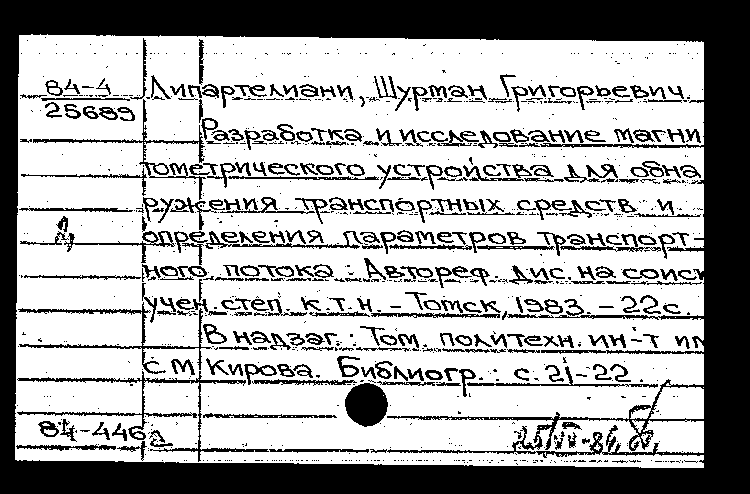 84-4 Липартелиани, Шурман Григорьевич
25689
Разработка и исследование магни
тометрического устройства для обна
ружения транспортных средств и
определения параметров транспорт-
ного потока : Автореф. дис. на соиск
учен. степ. к.т.н. - Томск, 1983. - 22с.
В надзаг.: Том. политехн. ин-т им
С М Кирова. Библиогр.: с. 21-22.
84-446